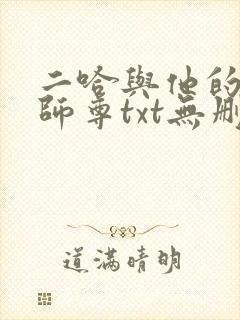 二哈與他的
師尊txt無刪
道滿晴明